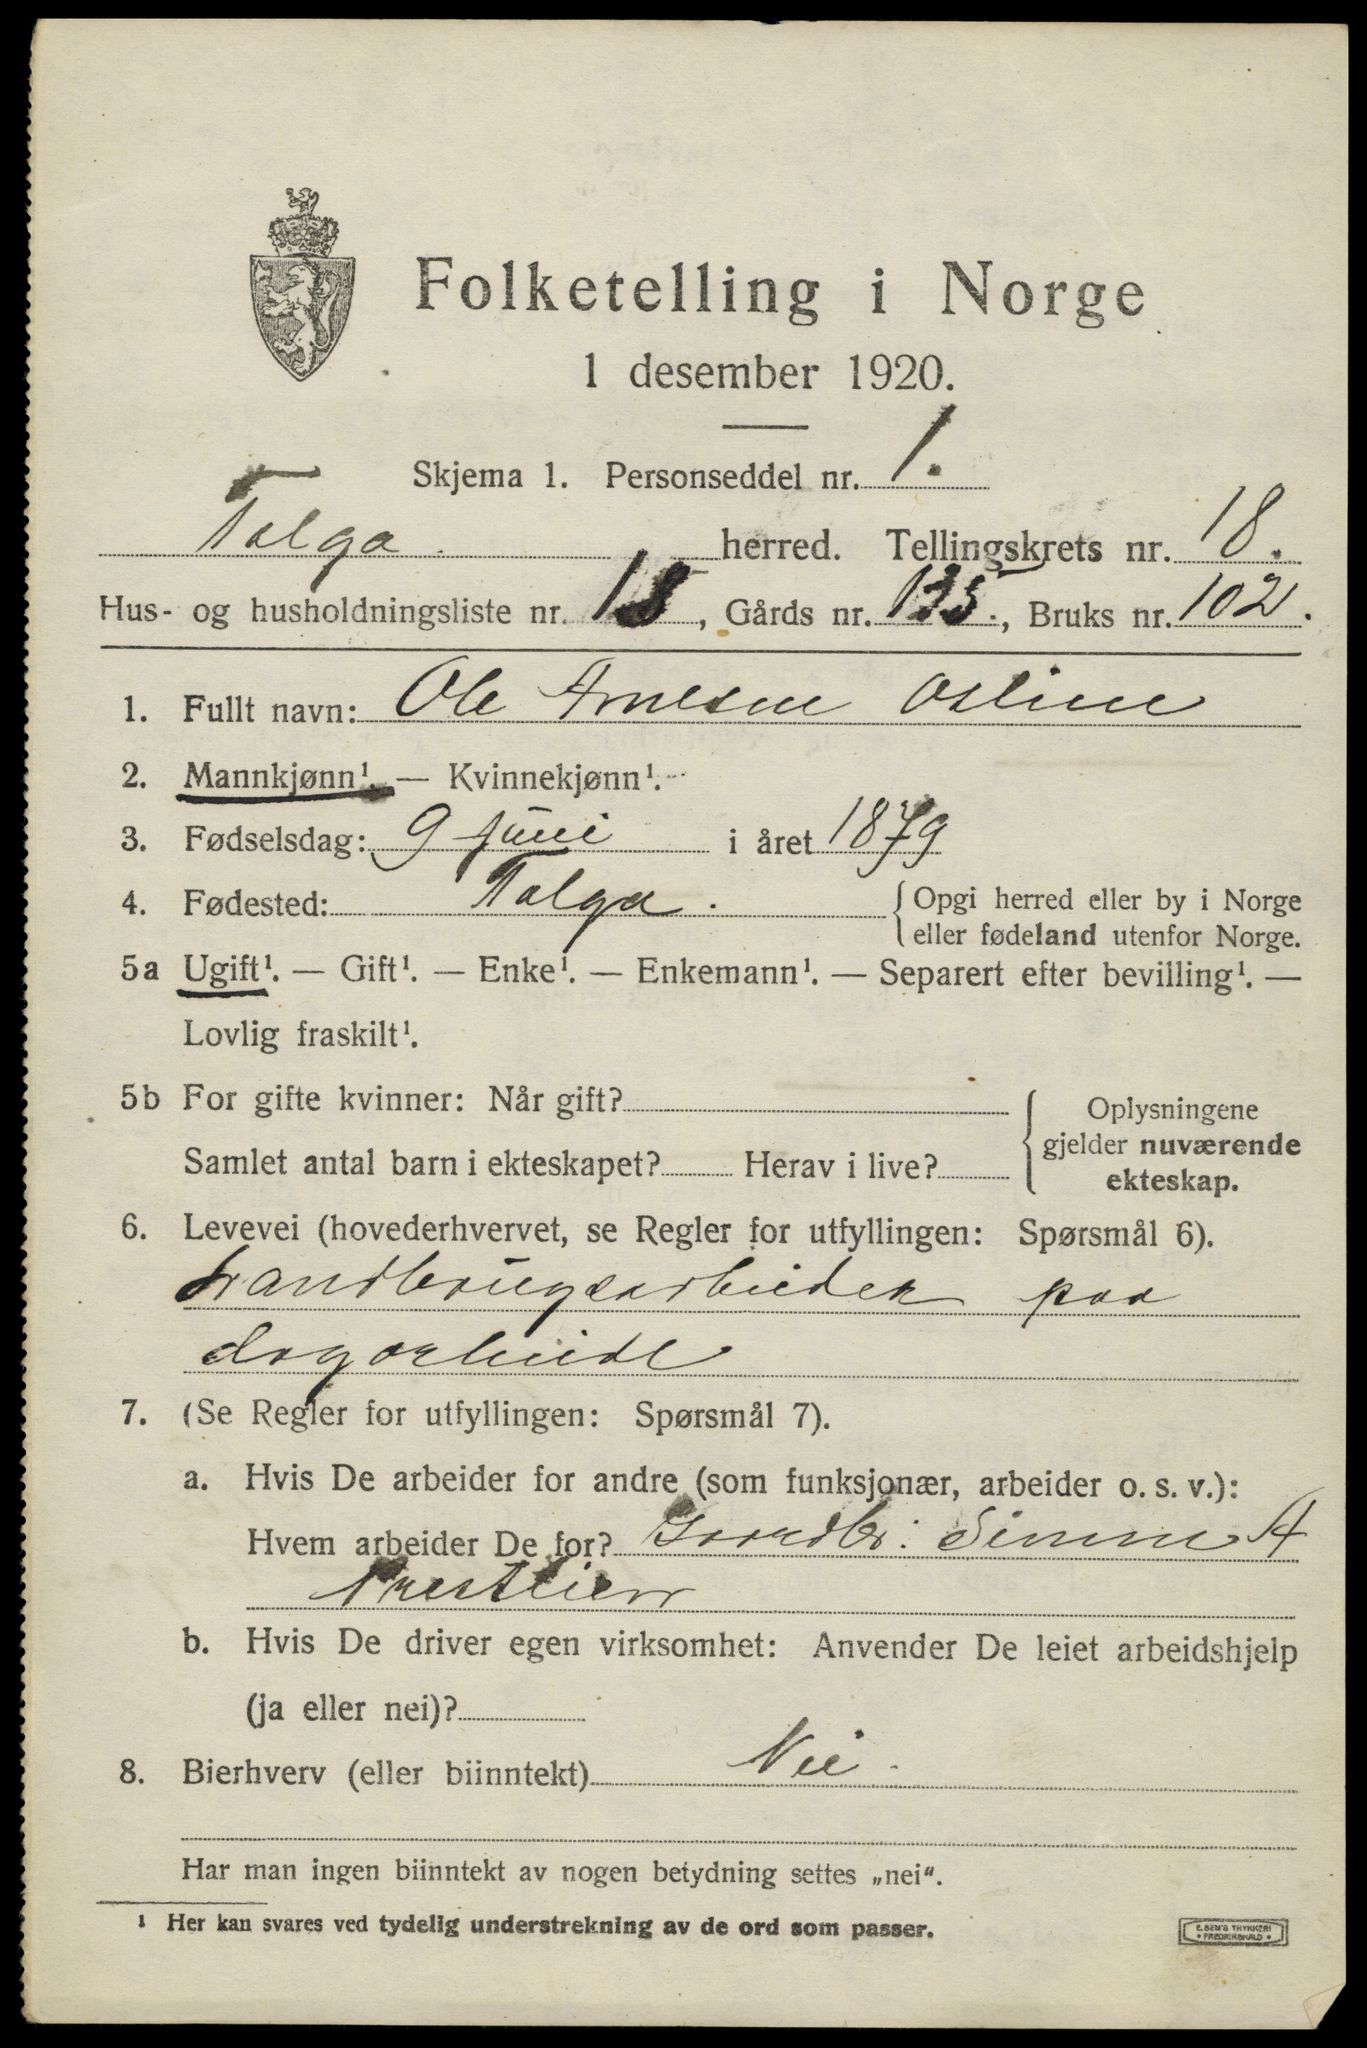 Folketelling i Norge
1 desember 1920.
Skjema 1. Personseddel nr. 1.
Tolga herred. Tellingskrets nr. 18.
Hus- og husholdningsliste nr. 18, Gårds nr. 135., Bruks nr. 102.
1. Fullt navn: Ole Arnesen
2. Mannkjønn¹. — Kvinnekjønn¹.
3. Fødselsdag: 9 juni i året 1879
4. Fødested: Tolga. { Opgi herred eller by i Norge
eller fødeland utenfor Norge.
5a Ugift¹. — Gift¹. — Enke¹. — Enkemann¹. — Separert efter bevilling¹. —
Lovlig fraskilt¹.
5b For gifte kvinner: Når gift?
Samlet antal barn i ekteskapet? Herav i live?
{ Oplysningene
gjelder nuværende
ekteskap.
6. Levevei (hovederhvervet, se Regler for utfyllingen: Spørsmål 6).
Landbrugsarbeider paa
dagarbeide
7. (Se Regler for utfyllingen: Spørsmål 7).
a. Hvis De arbeider for andre (som funksjonær, arbeider o. s. v.):
Hvem arbeider De for? Gaardbr. Simen A
b. Hvis De driver egen virksomhet: Anvender De leiet arbeidshjelp
(ja eller nei)?
8. Bierhverv (eller biinntekt) Nei.
Har man ingen biinntekt av nogen betydning settes „nei“.
¹ Her kan svares ved tydelig understrekning av de ord som passer.
E. SEM'S TRYKKERI
• FREDRIKSHALD •